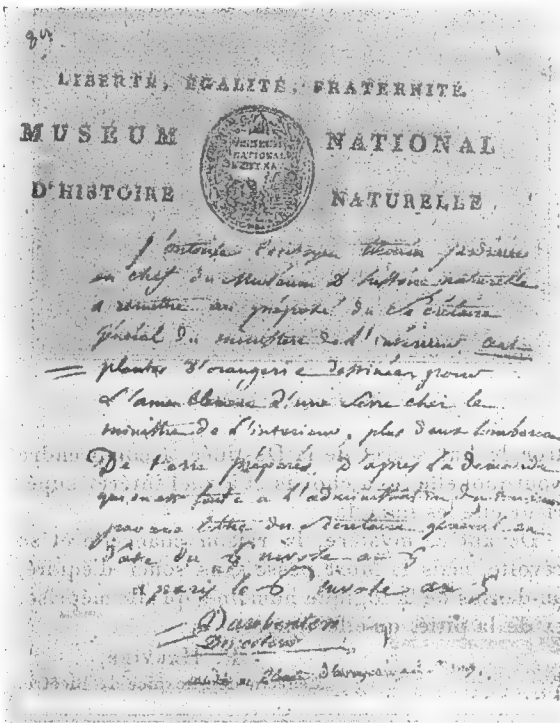 LIBERTÉ, ÉGALITÉ, FRATERNITÉ.
MUSÉUM NATIONAL
D'HISTOIRE NATURELLE
MUSEUM
NATIONAL
J'autorise le citoyen thouin jardinier
en chef du Muséum D'histoire naturelle
a remettre au préposé du Secrétaire
général du ministre de L'intérieur
plantes D'orangerie destinées pour
L'ameublement D'une Serre chez le
ministre de L'intérieur, plus deux tombereaux
De terre préparée, D'après la demande
qui en est faite a L'administration du muséum
par une lettre du Secrétaire général en
Date du nivose an 5
a paris le 6 nivose an 5
Daubenton
Directeur